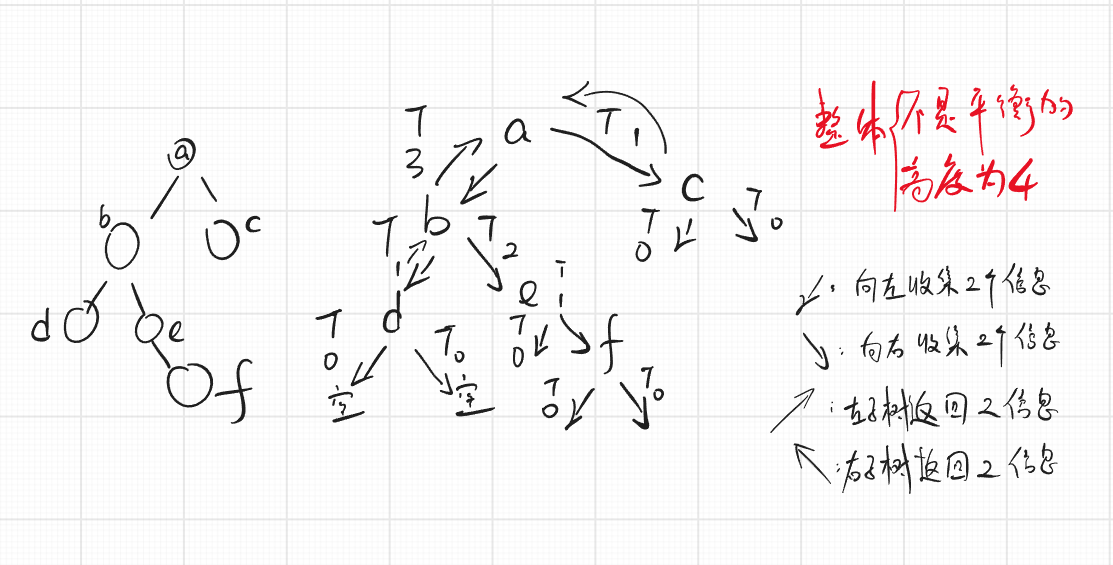 a
b
c
d
e
f
T
3
a
T 1
c
T 0
T 0
T 1
b
T 2
d
e
T 1
T 0
空
T 0
空
T 0
f
T 0
T 0
整体
不是平衡的
高度为4
: 向左收集2个信息
: 向右收集2个信息
: 左子树返回2信息
: 右子树返回2信息